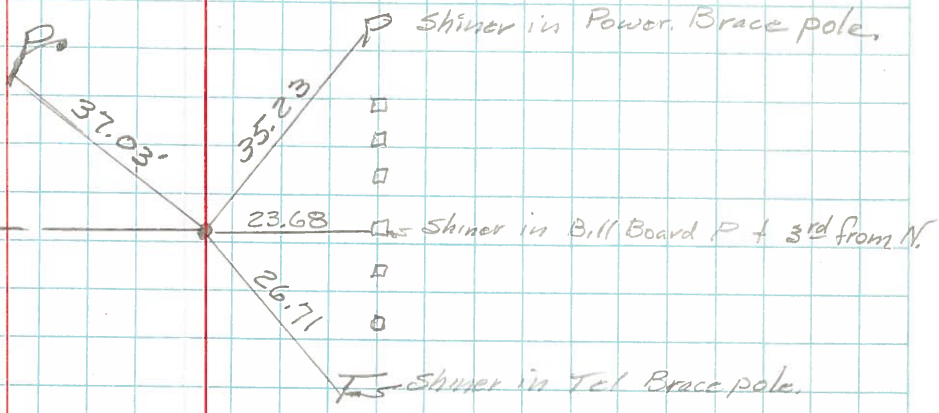 P Shiner in Power. Brace pole.
P
37.03'
35.23
23.68
Shiner in Bill Board P + 3rd from N.
26.71
T Shiner in Tel Brace pole.